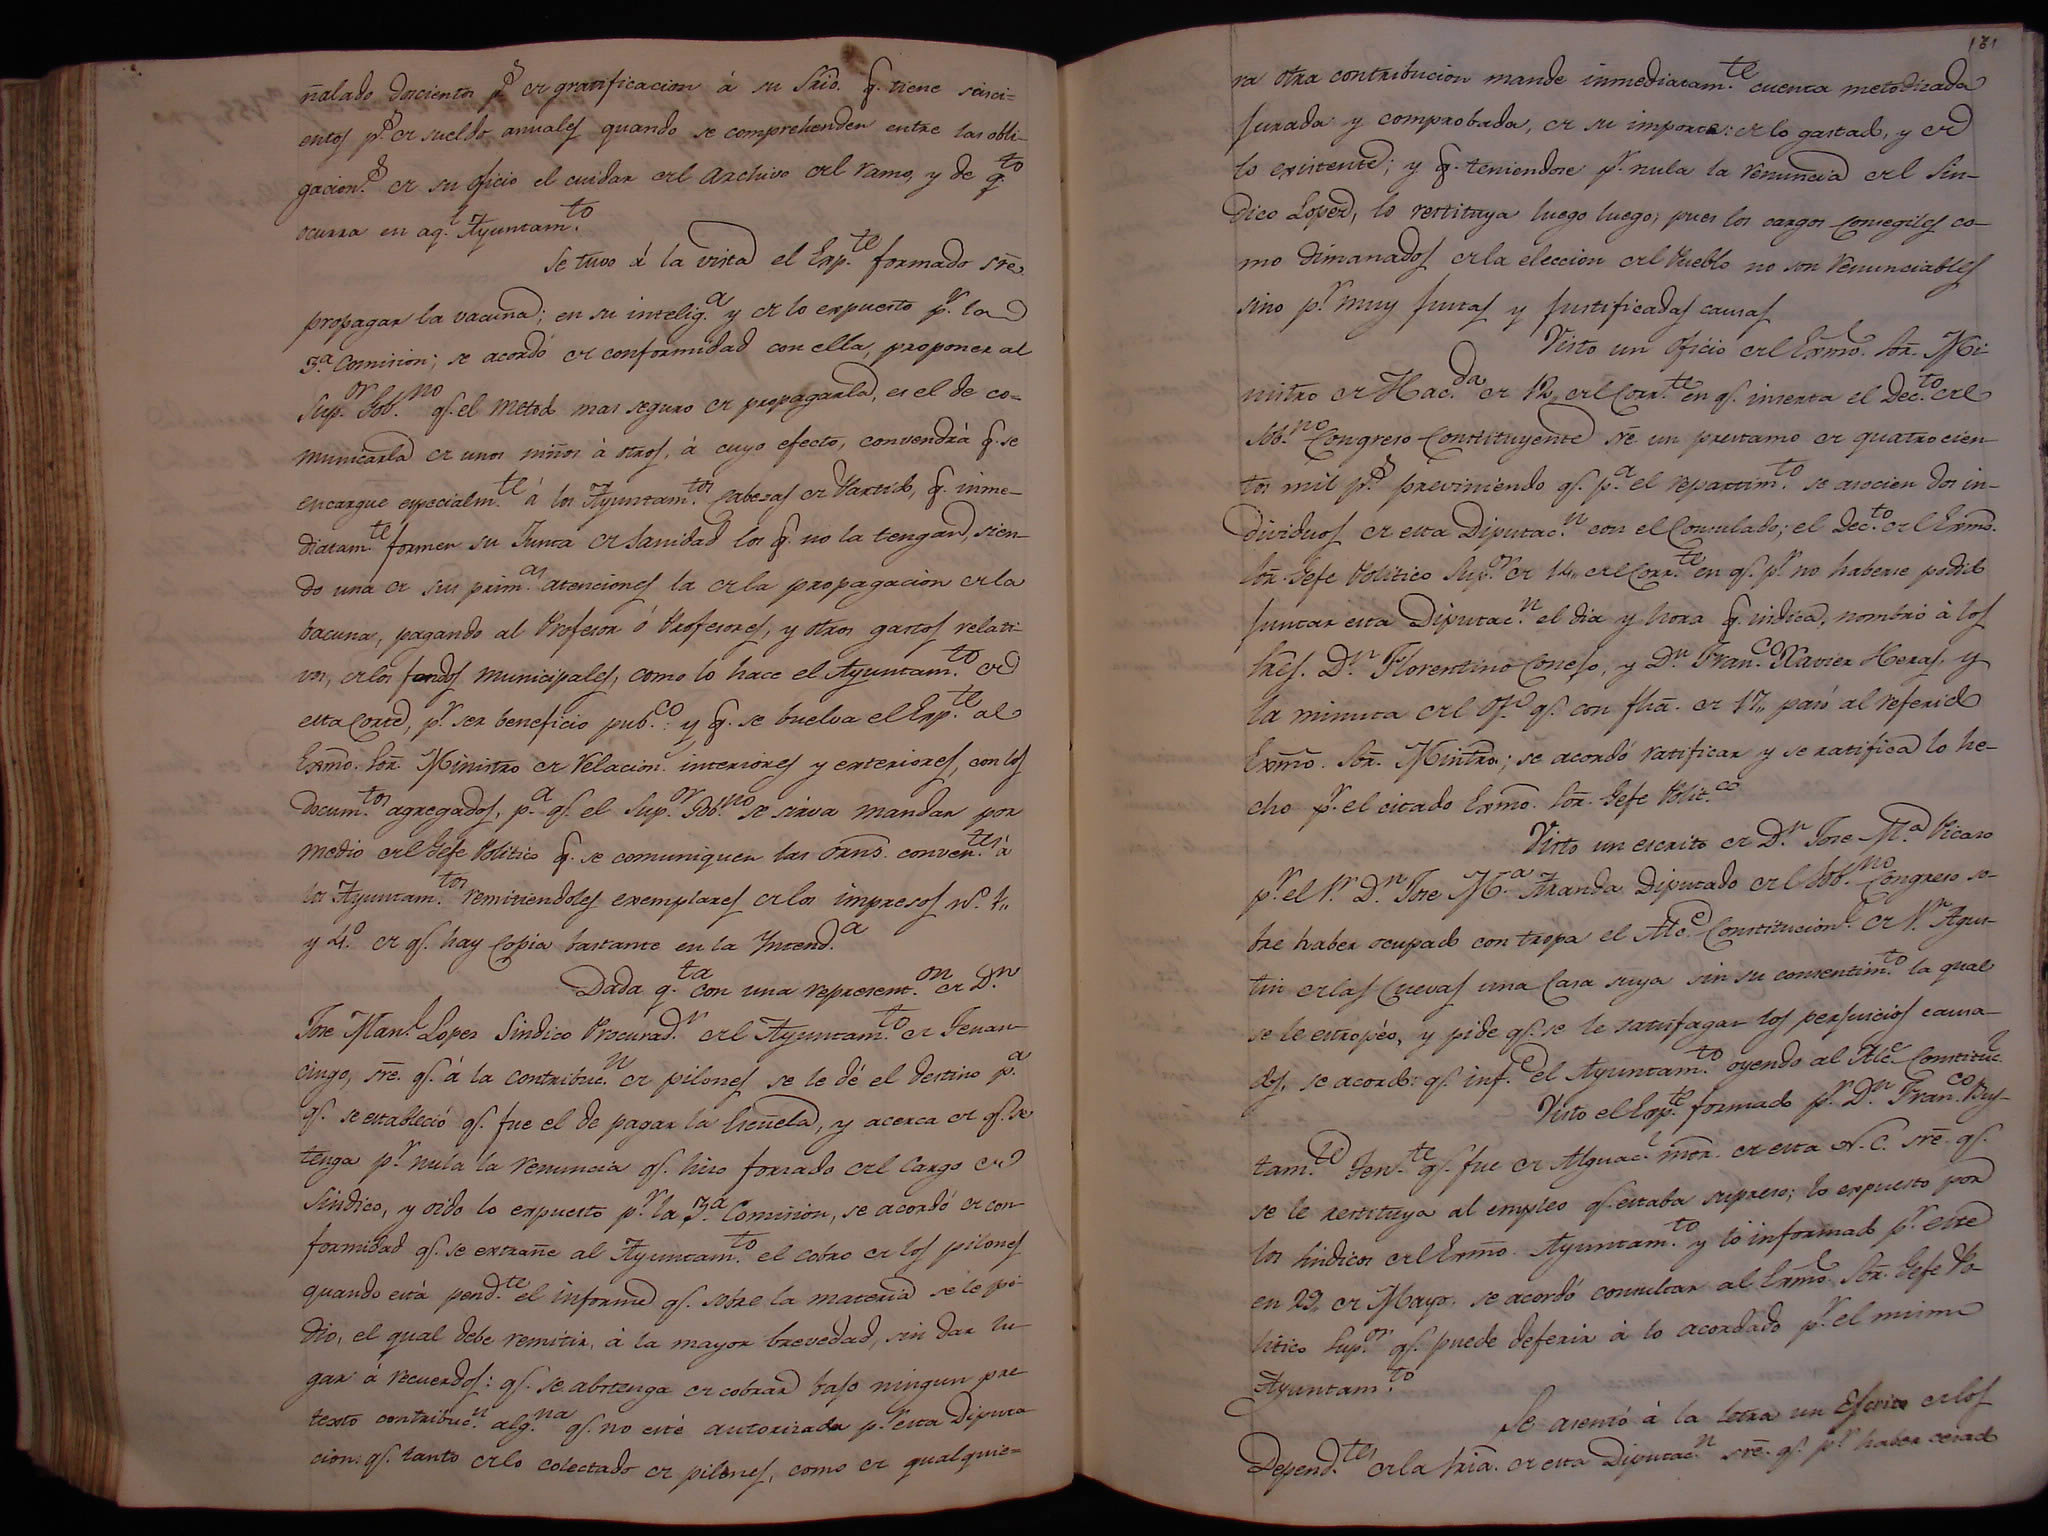 ñalado doscientos p.s de gratificacion á su Srio. q. tiene seisci-
entos p.s de sueldo anuales quando se comprehenden entre las obli-
gacion.s de su oficio el cuidar del Archivo del ramo, y de q.to
ocurra en aq.l Ayuntam.to
Se tuvo á la vista el Exp.te formado sre
propagar la vacuna; en su intelig.a y de lo expuesto p.r la
3.a Comision; se acordó de conformidad con ella, proponer al
Sup.or Gob.no q.e el metodo mas seguro de propagarla, es el de co-
municarla de unos niños á otros, á cuyo efecto, convendrá q. se
encargue especialm.te á los Ayuntam.tos Cabezas de Partido, q. inme-
diatam.te formen su Junta de Sanidad los q. no la tengan, sien-
do una de sus prim.as atenciones la de la propagacion de la
bacuna, pagando al Profesor ó Profesores, y otros gastos relati-
vos, de los fondos municipales, como lo hace el Ayuntam.to de
esta Corte, p.r ser beneficio pub.co: y q. se buelva el Exp.te al
Exmo. Sor. Ministro de Relacion.s interiores y exteriores, con los
docum.tos agregados, p.a q.e el Sup.or Gob.no se sirva mandar por
medio del Gefe Politico q. se comuniquen las orns. conven.tes á
los Ayuntam.tos remitiendoles exemplares de los impresos n.o 1,,
y 4.o de q.e hay copia bastante en la Intend.a
Dada q.ta con una represent.on de D.n
Jose Man.l Lopes Sindico Procurad.r del Ayuntam.to de Tenan-
cingo, sre. q.e á la contribuc.n de pilones se le dé el destino p.a
q.e se estableció q.e fue el de pagar la Escuela, y acerca de q.e se
tenga p.r nula la renuncia q.e hizo forzado del Cargo de
Sindico, y oido lo expuesto p.r la 3.a Comision, se acordó de con-
formidad q.e se extrañe al Ayuntam.to el cobro de los pilones
quando está pend.te el informe q.e sobre la materia se le pi-
dio, el qual debe remitir, á la mayor brevedad, sin dar lu-
gar á recuerdos: q.e se abstenga de cobrar bajo ningun pre
texto contribuc.n alg.na q.e no esté autorizada p.r esta Diputa
cion: q.e tanto de lo colectado de pilones, como de qualquie-
181
ra otra contribucion mande inmediatam.te cuenta metodizada
jurada y comprobada, de su importe: de lo gastado, y de
lo existente; y q. teniendose p.r nula la renuncia del Sin-
dico Lopez, lo restituya luego luego; pues los cargos consegiles co-
mo dimanados de la eleccion del Pueblo no son renunciables
sino p.r muy justas y justificadas causas
Visto un oficio del Exmo. Sor. Mi-
nistro de Hac.da de 12,, del Corr.te en q.e inserta el Dec.to del
Sob.no Congreso Constituyente sre un prestamo de quatrocien-
tos mil p.s previniendo q.e p.a el repartim.to se asocien dos in-
dividuos de esta Diputac.n con el Consulado; el Dec.to del Exmo.
Sor. Gefe Politico Sup.or de 14,, del Corr.te en q.e p.r no haberse podido
juntar esta Diputac.n el dia y hora q. indica, nombró á los
Sres. D.n Florentino Conejo, y D.n Fran.co Xavier Heras, y
la minuta del Of.o q.e con fha. de 17,, pasó al referido
Exmo. Sor. Mintro; se acordó ratificar y se ratifica lo he-
cho p.r el citado Exmo. Sor. Gefe Polit.co
Visto un escrito de D.n Jose M.a Picaso
p.r el S.r D.n Jose M.a Aranda Diputado del Sob.no Congreso so-
bre haber ocupado con tropa el Alc.e Constitucion.l de S.n Agus-
tin de las Cuevas una Casa suya sin su consentim.to la qual
se le estropéo, y pide q.e se le satisfagan los perjuicios causa-
dos, se acordó: q.e inf.e el Ayuntam.to oyendo al Alc.e Constituc.l
Visto el Exp.te formado p.r D.n Fran.co Bus-
tam.te Ten.te q.e fue de Alguac.l mor. de esta N.C. sre. q.e
se le restituya al empleo q.e estaba supreso; lo expuesto por
los Sindicos del Exmo. Ayuntam.to y lo informado p.r este
en 29,, de Mayo, se acordó consultar al Exmo. Sor. Gefe Po-
litico Sup.or q.e puede deferir á lo acordado p.r el mismo
Ayuntam.to
Se asentó á la letra un Escrito de los
Depend.tes de la Sria. de esta Diputac.n sre. q.e p.r haber cesado